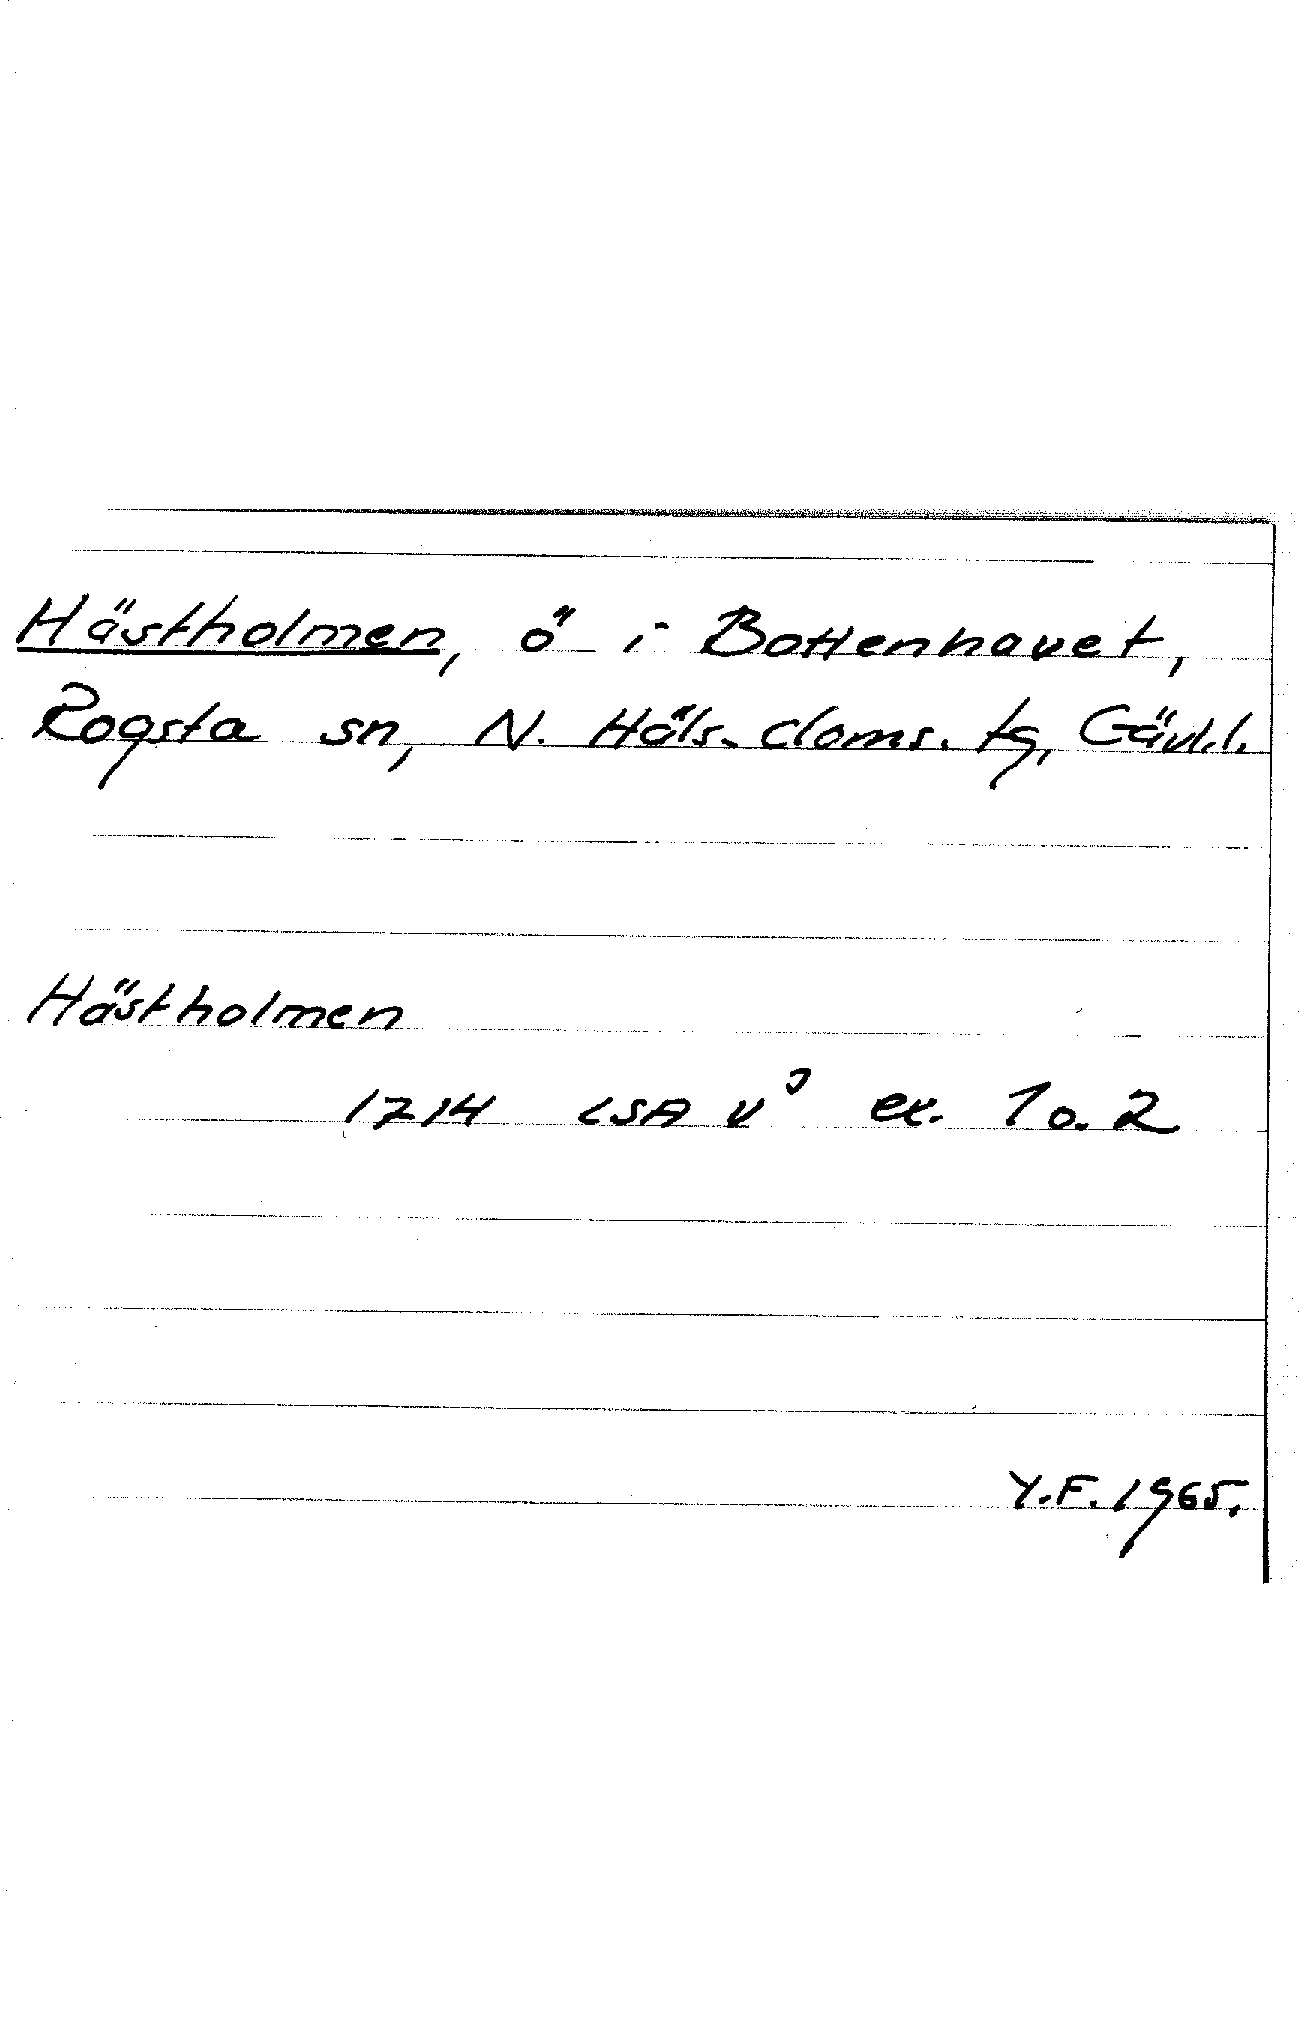 Hästholmen, ö i Bottenhavet,
Rogsta sn, N. Häls. doms. tg, Gävl.l.
Hästholmen
1714 LSA V ex. 1 o. 2
Y.F. 1965.